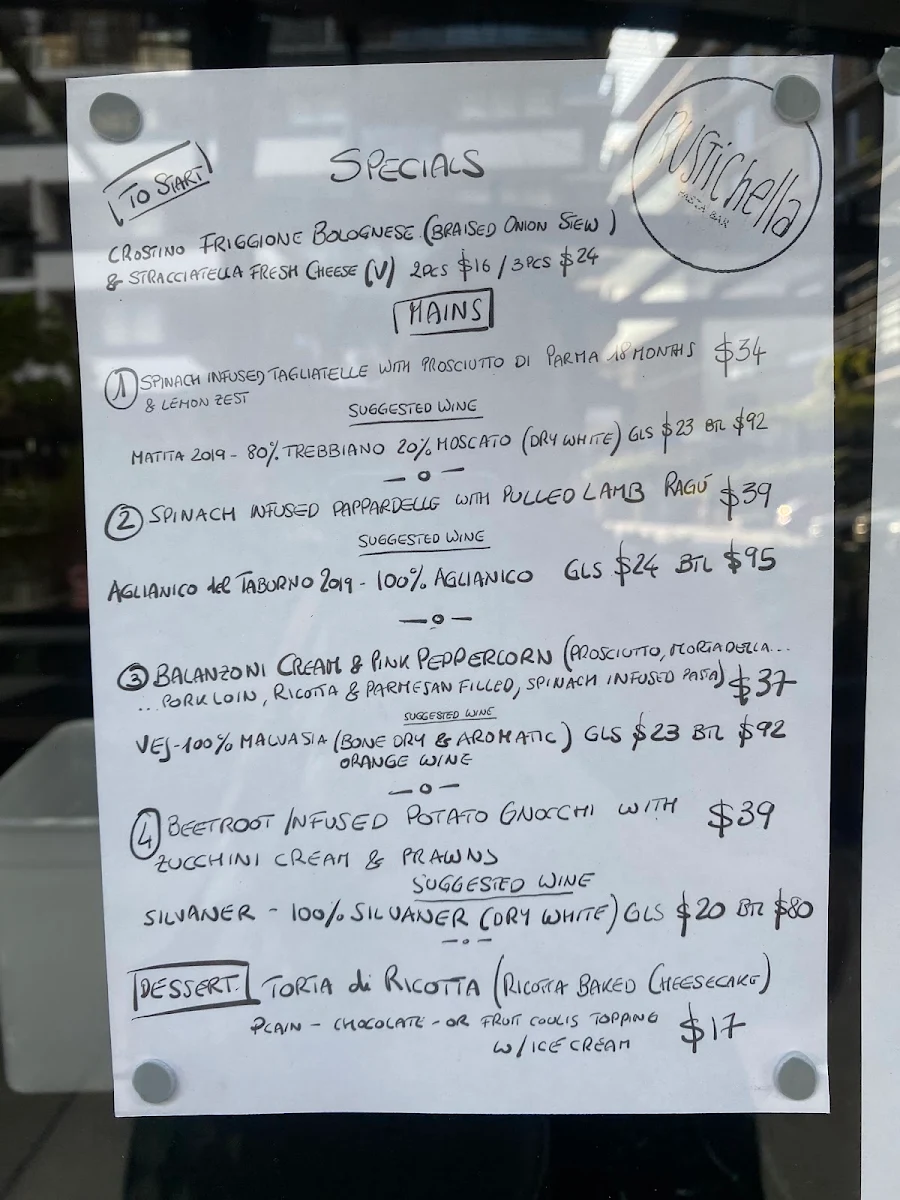 TO START
SPECIALS
RUSTichella
PASTA BAR
CROSTINO FRIGGIONE BOLOGNESE (BRAISED ONION STEW)
& STRACCIATELLA FRESH CHEESE (V) 2PCS $16 / 3PCS $24
MAINS
1 SPINACH INFUSED TAGLIATELLE WITH PROSCIUTTO DI PARMA 18 MONTHS $34
& LEMON ZEST
SUGGESTED WINE
MATITA 2019 - 80% TREBBIANO 20% MOSCATO (DRY WHITE) GLS $23 BTL $92
2 SPINACH INFUSED PAPPARDELLE WITH PULLED LAMB RAGÚ $39
SUGGESTED WINE
AGLIANICO del TABURNO 2019 - 100% AGLIANICO GLS $24 BTL $95
3 BALANZONI CREAM & PINK PEPPERCORN (PROSCIUTTO, MORTADELLA...
...PORK LOIN, RICOTTA & PARMESAN FILLED, SPINACH INFUSED PASTA) $37
SUGGESTED WINE
VEJ - 100% MALVASIA (BONE DRY & AROMATIC) GLS $23 BTL $92
ORANGE WINE
4 BEETROOT INFUSED POTATO GNOCCHI WITH $39
ZUCCHINI CREAM & PRAWNS
SUGGESTED WINE
SILVANER - 100% SILVANER (DRY WHITE) GLS $20 BTL $80
DESSERT. TORTA di RICOTTA (RICOTTA BAKED CHEESECAKE)
PLAIN - CHOCOLATE - OR FRUIT COULIS TOPPING $17
W/ ICE CREAM